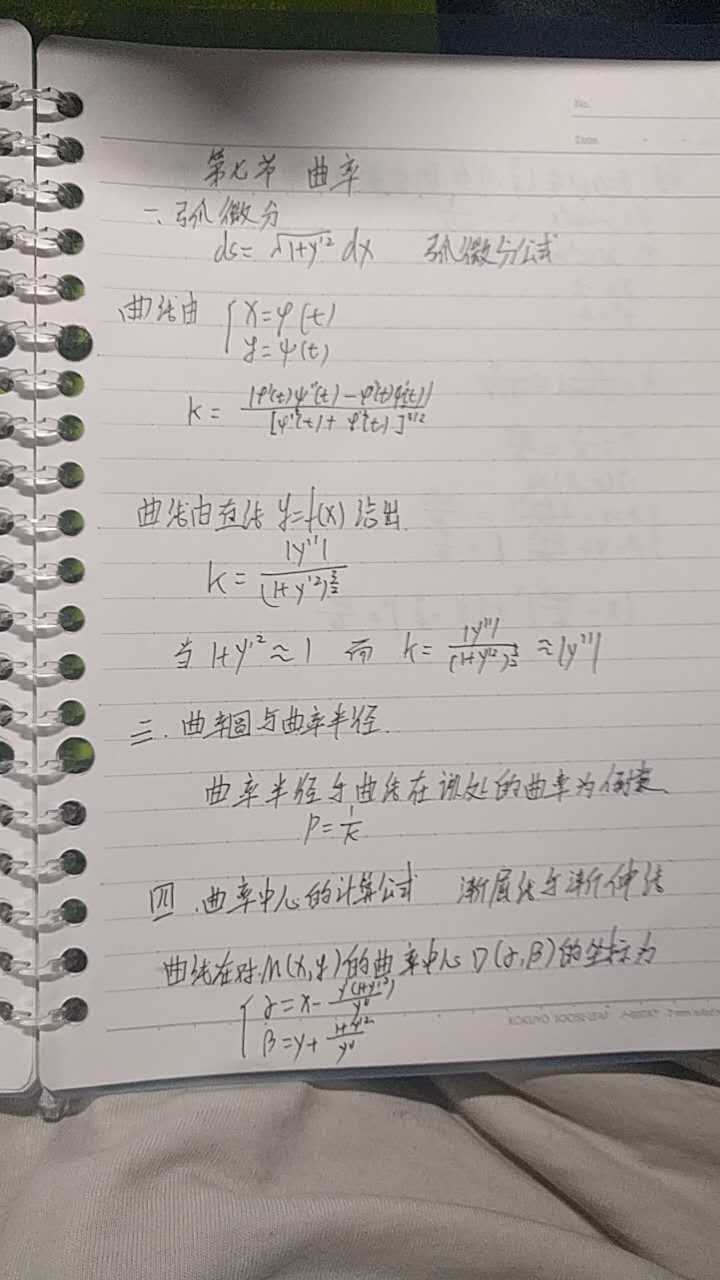 No.
Date
第七节 曲率
一、弧微分
ds = √(1+y'²) dx 弧微分公式
曲线由 { x = φ(t)
y = ψ(t)
K = |φ'(t)ψ''(t) - φ''(t)ψ'(t)| / [φ'²(t) + ψ'²(t)]^3/2
曲线由直线 y=f(x) 给出.
K = |y''| / (1+y'²)^3/2
当 1+y'² ≈ 1 而 k = |y''| / (1+y'²)^3/2 ≈ |y''|
三、曲率圆与曲率半径.
曲率半径与曲线在该处的曲率为倒数
ρ = 1/K
四、曲率中心的计算公式 渐屈线与渐伸线
曲线在对M(x,y)的曲率中心D(α,β)的坐标为
{ α = x - y'(1+y'²)/y''
β = y + 1+y'²/y''
KOKUYO LOOSE-LEAF